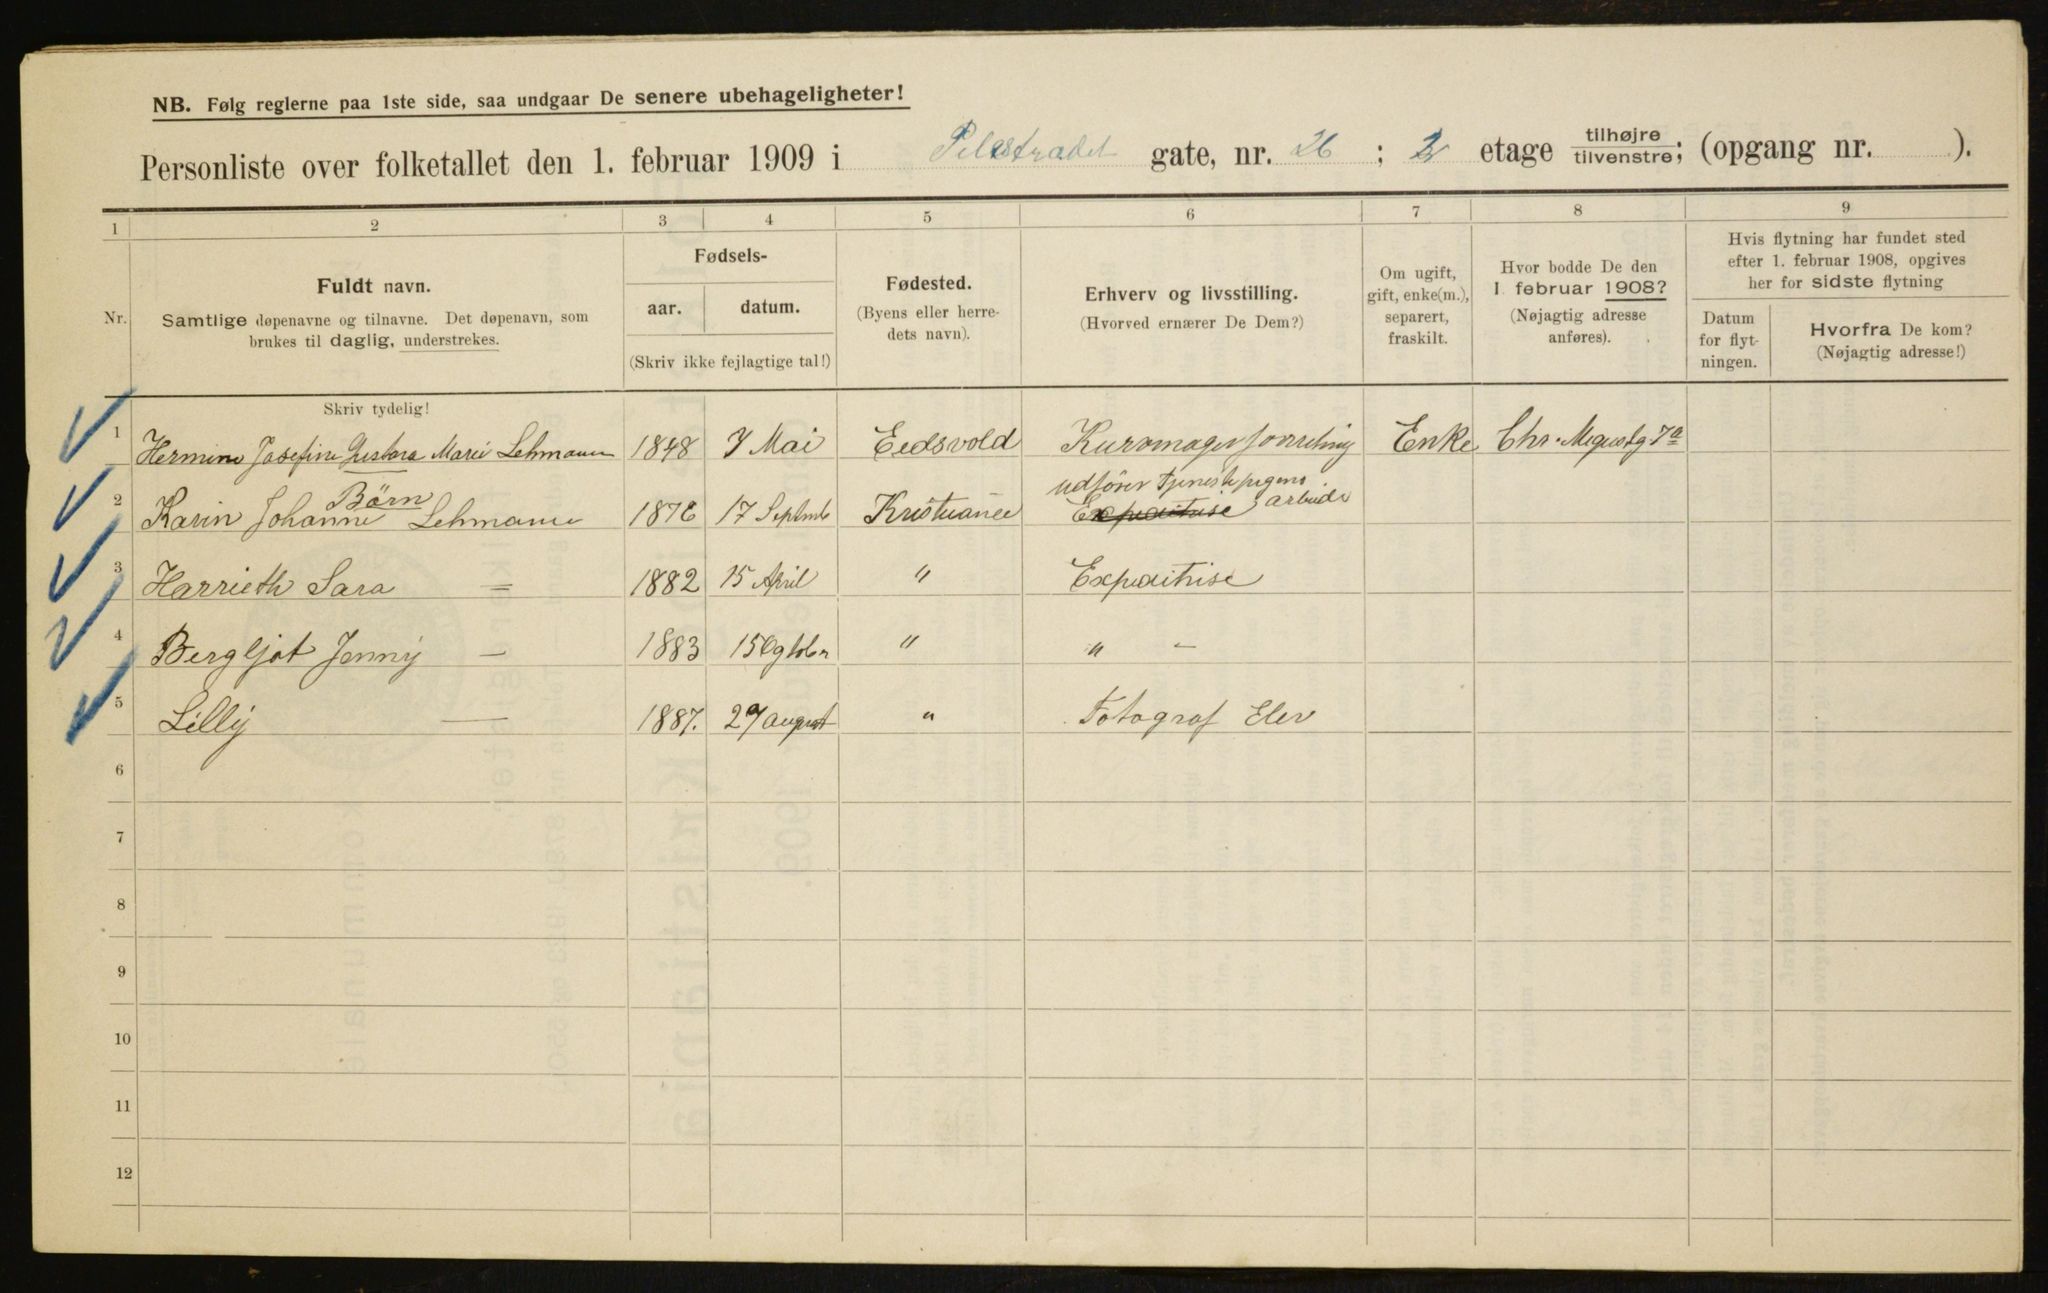 NB. Følg reglerne paa 1ste side, saa undgaar De senere ubehageligheter!
Personliste over folketallet den 1. februar 1909 i Pilestrædet gate, nr. 26 ; 2 etage tilhøjre / tilvenstre; (opgang nr. ).
1 2 3 4 5 6 7 8 9
Nr.
Fuldt navn.
Samtlige døpenavne og tilnavne. Det døpenavn, som
brukes til daglig, understrekes.
Fødsels-
aar. datum.
(Skriv ikke fejlagtige tal!)
Fødested.
(Byens eller herre-
dets navn).
Erhverv og livsstilling.
(Hvorved ernærer De Dem?)
Om ugift,
gift, enke(m.),
separert,
fraskilt.
Hvor bodde De den
1 februar 1908?
(Nøjagtig adresse
anføres).
Hvis flytning har fundet sted
efter 1. februar 1908, opgives
her for sidste flytning
Datum
for flyt-
ningen.
Hvorfra De kom?
(Nøjagtig adresse!)
Skriv tydelig!
1 Hermine Josefine Gustava Marie Lehmann 1848 7 Mai Eedsvold Enke
Børn
udfører tjenestepigens
2 Karin Johanne Lehmann 1876 17 Septmb Kristiania Expeditrise arbeide
3 Harrieth Sara = 1882 15 April " Expeditrise
4 Bergljot Jenny — 1883 15 Ogtober " " -
5 Lilly — 1887. 29 august " Fotograf Elev
6
7
8
9
10
11
12